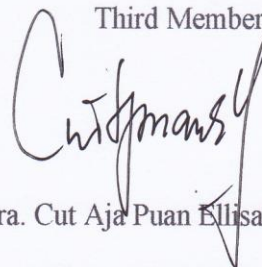 Third Member
ra. Cut Aja Puan Ellisa